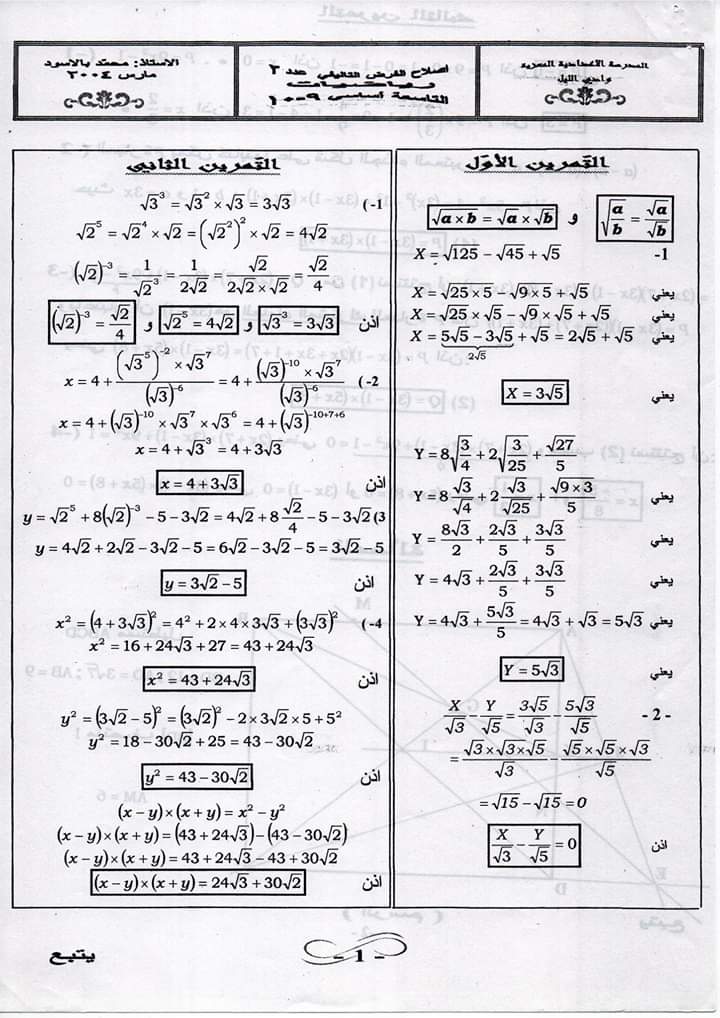 المدرسة الاعدادية السريـة
بواحبي الليل
اصلاح الفرض التاليفي عدد ٢
رياضيات
التاسعة أساسي ٩-١٠
الاستاذ: محمد بالاسود
مارس ٢٠٠٤
التمرين الأول
√(a/b) = √a/√b و √(a×b) = √a×√b
1- X = √125 − √45 + √5
يعني X = √(25×5) − √(9×5) + √5
يعني X = √25×√5 − √9×√5 + √5
يعني X = 5√5 − 3√5 + √5 = 2√5 + √5
2√5
يعني X = 3√5
Y = 8√(3/4) + 2√(3/25) + √27/5
يعني Y = 8 √3/√4 + 2 √3/√25 + √(9×3)/5
يعني Y = 8√3/2 + 2√3/5 + 3√3/5
يعني Y = 4√3 + 2√3/5 + 3√3/5
يعني Y = 4√3 + 5√3/5 = 4√3 + √3 = 5√3
يعني Y = 5√3
- 2 - X/√3 − Y/√5 = 3√5/√3 − 5√3/√5
= (√3×√3×√5)/√3 − (√5×√5×√3)/√5
= √15 − √15 = 0
اذن X/√3 − Y/√5 = 0
التمرين الثاني
1- ) √3³ = √3² × √3 = 3√3
√2⁵ = √2⁴ × √2 = (√2²)² × √2 = 4√2
(√2)⁻³ = 1/√2³ = 1/(2√2) = √2/(2√2×√2) = √2/4
اذن √3³ = 3√3 و √2⁵ = 4√2 و (√2)⁻³ = √2/4
2- ) x = 4 + ((√3⁵)⁻² × √3⁷)/(√3)⁻⁶ = 4 + ((√3)⁻¹⁰ × √3⁷)/(√3)⁻⁶
x = 4 + (√3)⁻¹⁰ × √3⁷ × √3⁶ = 4 + (√3)⁻¹⁰⁺⁷⁺⁶
x = 4 + √3³ = 4 + 3√3
اذن x = 4 + 3√3
3) y = √2⁵ + 8(√2)⁻³ − 5 − 3√2 = 4√2 + 8 √2/4 − 5 − 3√2
y = 4√2 + 2√2 − 3√2 − 5 = 6√2 − 3√2 − 5 = 3√2 − 5
اذن y = 3√2 − 5
4- ) x² = (4 + 3√3)² = 4² + 2×4×3√3 + (3√3)²
x² = 16 + 24√3 + 27 = 43 + 24√3
اذن x² = 43 + 24√3
y² = (3√2 − 5)² = (3√2)² − 2×3√2×5 + 5²
y² = 18 − 30√2 + 25 = 43 − 30√2
اذن y² = 43 − 30√2
(x − y)×(x + y) = x² − y²
(x − y)×(x + y) = (43 + 24√3) − (43 − 30√2)
(x − y)×(x + y) = 43 + 24√3 − 43 + 30√2
اذن (x − y)×(x + y) = 24√3 + 30√2
- 1 -
يتبع